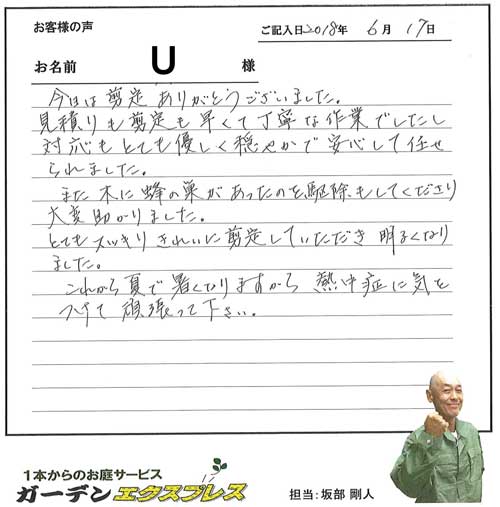 お客様の声
ご記入日2018年 6月 17日
お名前 U 様
今日は剪定ありがとうございました。
見積りも剪定も早くて丁寧な作業でしたし
対応もとても優しく穏やかで安心して任せ
られました。
また木に蜂の巣があったのを駆除もしてくださり
大変助かりました。
とてもスッキリきれいに剪定していただき明るくなり
ました。
これから夏で暑くなりますから熱中症に気を
つけて頑張って下さい。
1本からのお庭サービス
ガーデンエクスプレス
担当:坂部 剛人